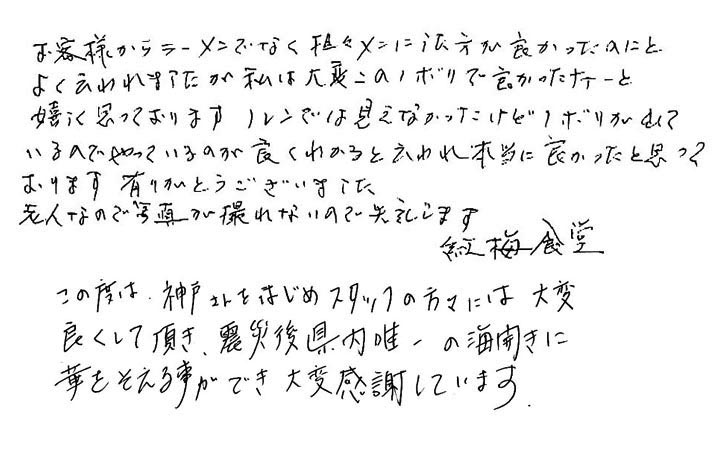 お客様からラーメンでなく担々メンにした方が良かったのにと
よく云われましたが私は大変このノボリで良かったナァーと
嬉しく思っております ノレンでは見えなかったけどノボリが出て
いるのでやっているのが良くわかると云われ本当に良かったと思って
おります 有りがとうございました
老人なので写真が撮れないので失礼します
紅梅食堂
この度は、神戸さんをはじめスタッフの方々には大変
良くして頂き、震災後県内唯一の海開きに
華をそえる事ができ大変感謝しています.